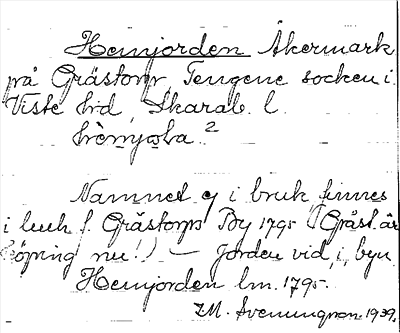 Hemjorden Åkermark
på Grästorp, Tengene socken i
Viste hd, Skarab. l.
Namnet ej i bruk finnes
i luch f. Grästorps By 1795 (Gråst. är
köping nu!) — Jorden vid i byn
Hemjorden lm. 1795.
I.M. Svenungson 1939.